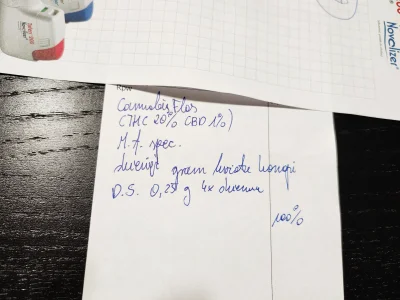 Novolizer®
Rp.
Cannabis Flos
(THC 20% CBD 1%)
M.f. spec.
dwadzieścia gram kwiatu konopi
D.S. 0,25 g 4x dziennie
100%